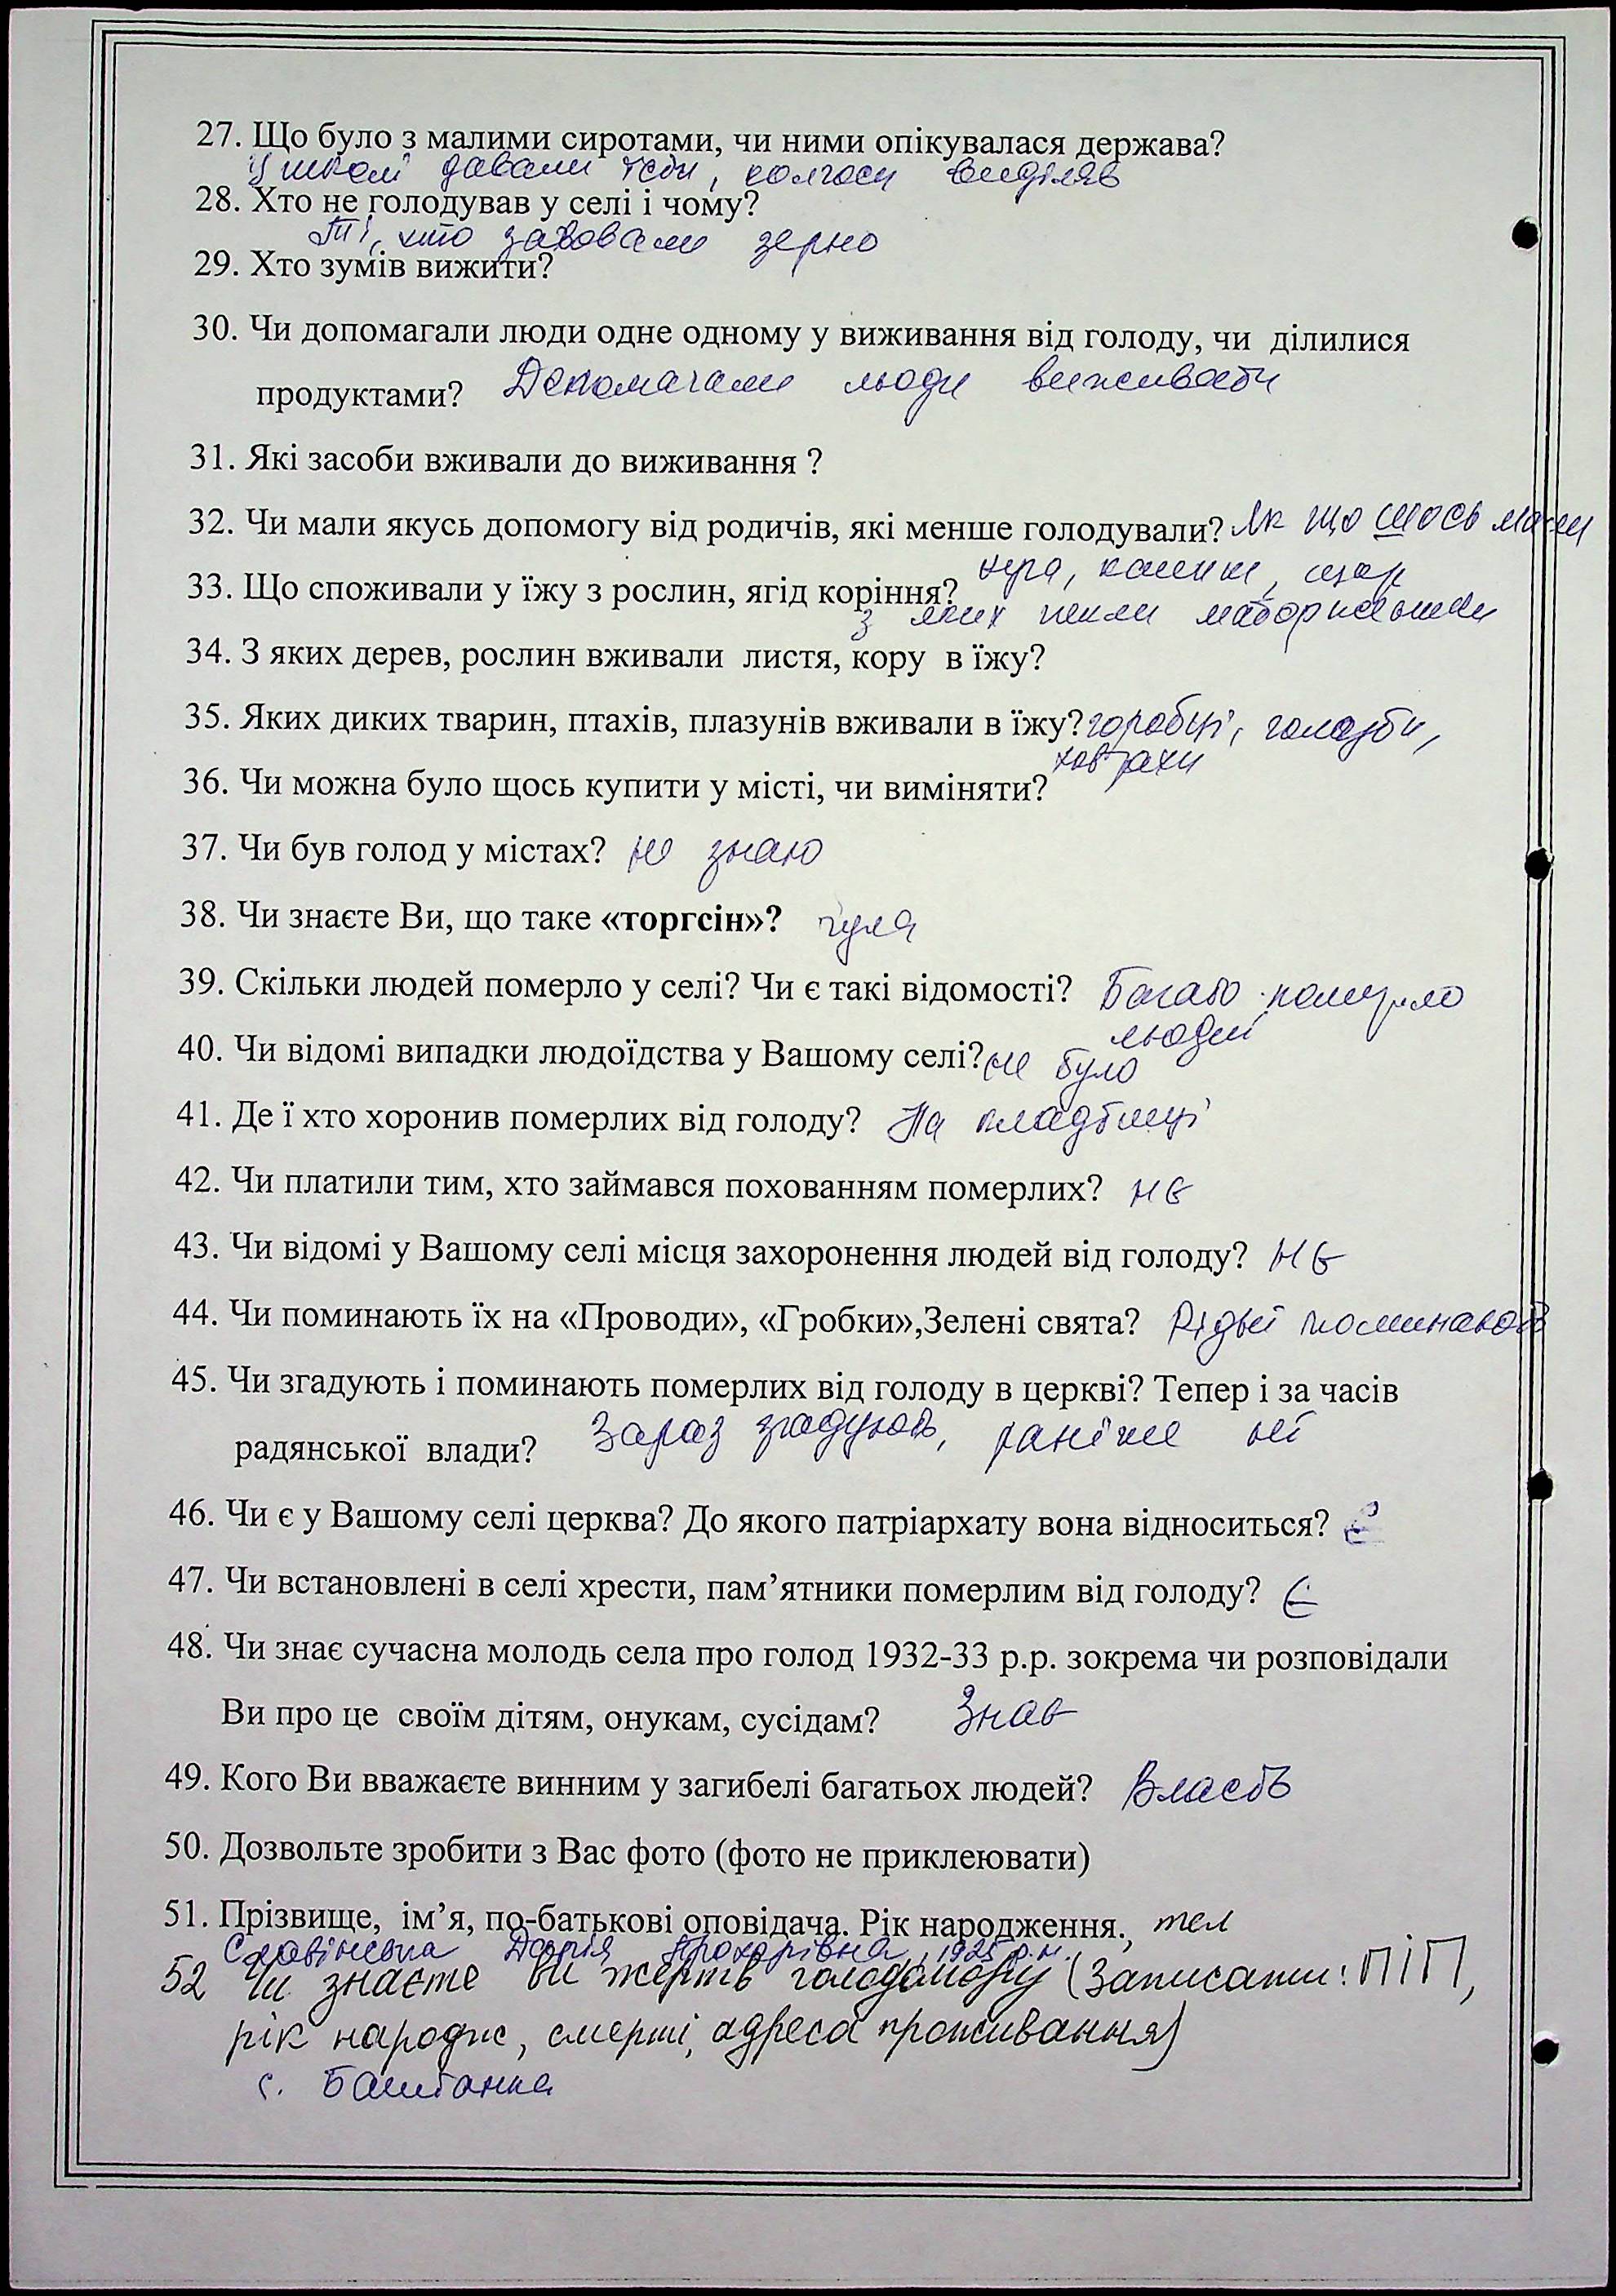 27. Що було з малими сиротами, чи ними опікувалася держава?
У школі давали їсти, колгосп виділяв
28. Хто не голодував у селі і чому?
Ті, хто заховали зерно
29. Хто зумів вижити?
30. Чи допомагали люди одне одному у виживання від голоду, чи ділилися
продуктами? Допомагали люди виживати
31. Які засоби вживали до виживання ?
32. Чи мали якусь допомогу від родичів, які менше голодували? Як що щось мали
33. Що споживали у їжу з рослин, ягід коріння? кура, калачики, щир
з яких пекли маторженики
34. З яких дерев, рослин вживали листя, кору в їжу?
35. Яких диких тварин, птахів, плазунів вживали в їжу? горобці, голуби,
ховрахи
36. Чи можна було щось купити у місті, чи виміняти?
37. Чи був голод у містах? не знаю
38. Чи знаєте Ви, що таке «торгсін»? чула
39. Скільки людей померло у селі? Чи є такі відомості? Багато померло
людей
40. Чи відомі випадки людоїдства у Вашому селі? не було
41. Де ї хто хоронив померлих від голоду? На кладбищі
42. Чи платили тим, хто займався похованням померлих? нє
43. Чи відомі у Вашому селі місця захоронення людей від голоду? нє
44. Чи поминають їх на «Проводи», «Гробки»,Зелені свята? Рідні поминають
45. Чи згадують і поминають померлих від голоду в церкві? Тепер і за часів
радянської влади? Зараз згадують, раніше ні
46. Чи є у Вашому селі церква? До якого патріархату вона відноситься? Є
47. Чи встановлені в селі хрести, пам’ятники померлим від голоду? Є
48. Чи знає сучасна молодь села про голод 1932-33 р.р. зокрема чи розповідали
Ви про це своїм дітям, онукам, сусідам? Знає
49. Кого Ви вважаєте винним у загибелі багатьох людей? Власть
50. Дозвольте зробити з Вас фото (фото не приклеювати)
51. Прізвище, ім’я, по-батькові оповідача. Рік народження., тел
Славінська Дарія Прохорівна, 1925 р.н.
52 Чи знаєте ви жертв голодомору (записати: ПІП,
рік народж, смерті, адреса проживання)
с. Баштанка